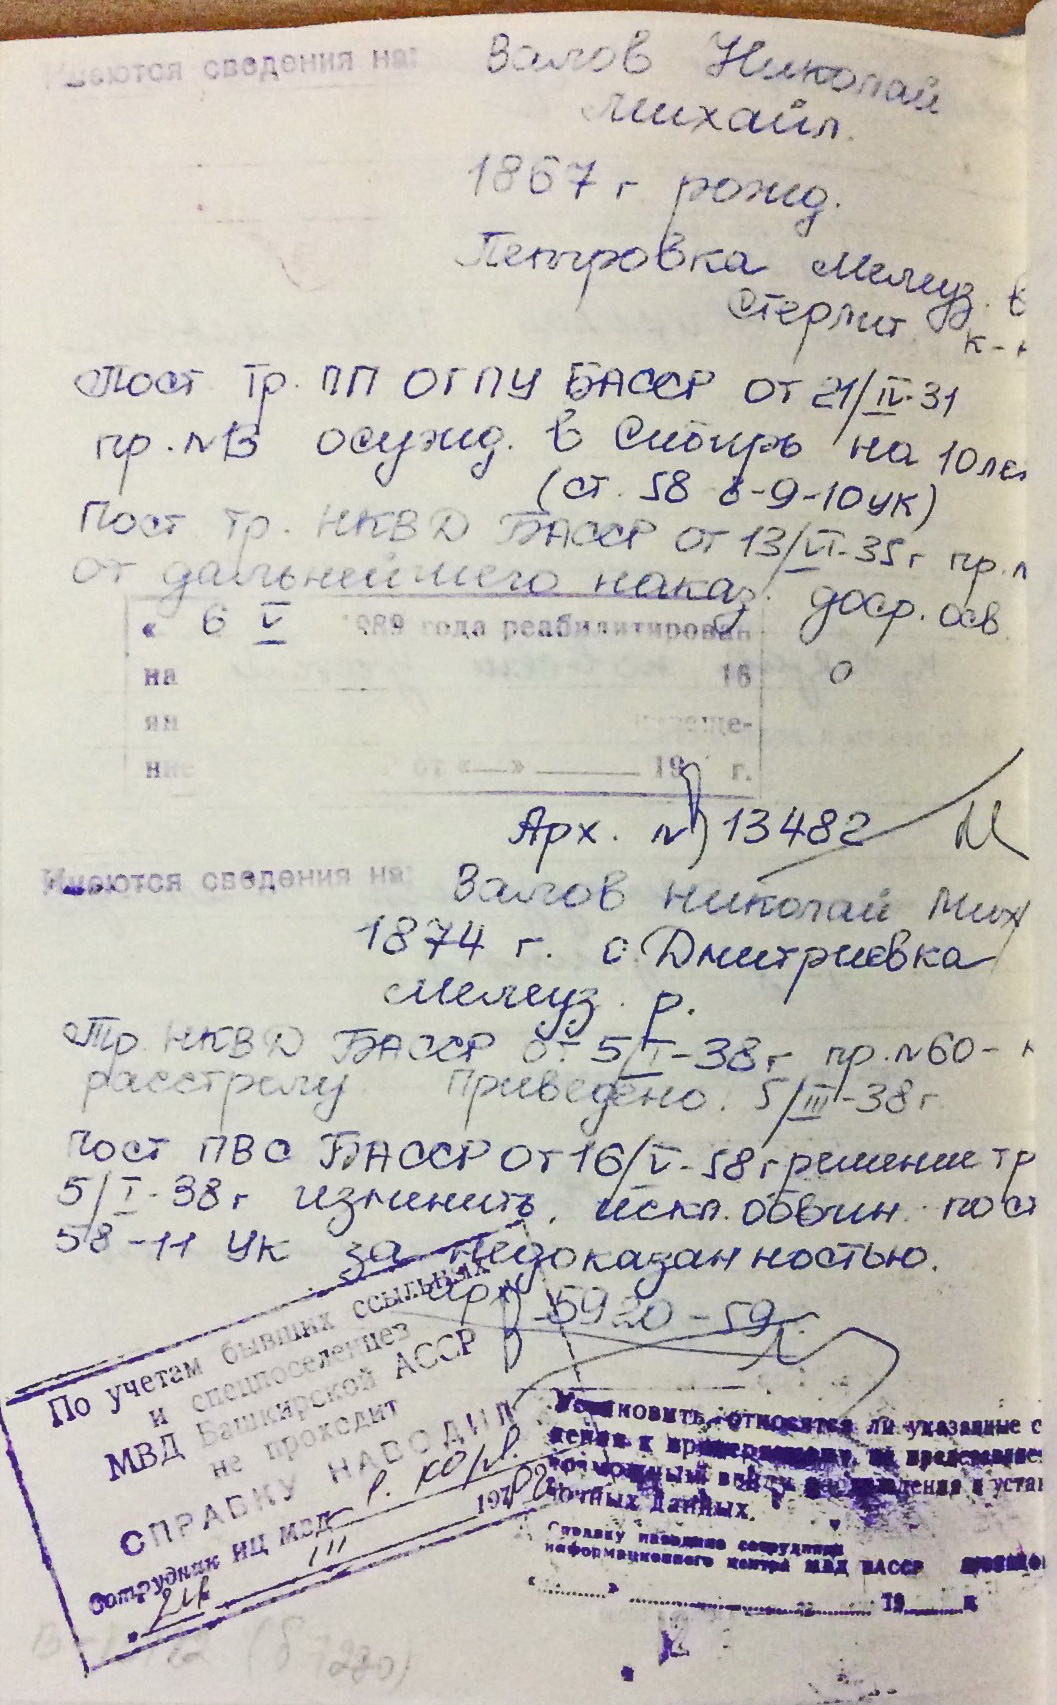 Имеются сведения на: Валов Николай
Михайл.
1867 г рожд.
Петровка Мелеуз. в
Стерлит. к-н
Пост Тр. ПП ОГПУ БАССР от 21/IV-31
пр. №13 осужд. в Сибирь на 10 лет
(ст. 58-8-9-10 УК)
Пост Тр. НКВД БАССР от 13/VI-35 г пр. №
от дальнейшего наказ. доср. осв.
« 6 V 1989 года реабилитирован
на 16 0
ян ще-
ние от «—» 19 г.
Арх. № 13482
Имеются сведения на: Валов Николай Мих
1874 г. с. Дмитриевка
Мелеуз. р.
Тр. НКВД БАССР от 5/I-38 г пр. №60- к
расстрелу Приведено. 5/III-38 г
Пост ПВС БАССР от 16/V-58 г решение тр
5/I-38 г изменить, искл. обвин. по ст
58-11 УК за недоказанностью.
5920-59
По учетам бывших ссыльных
и спецпоселенцев
МВД Башкирской АССР
не проходит
СПРАВКУ НАВОДИЛ
Сотрудник ИЦ МВД
24 III 197
Установить, относятся ли указанные с
возможный ввиду
ночных данных.
Справку наводил сотрудник
информационного центра МВД БАССР
« » 19 г.
7280)